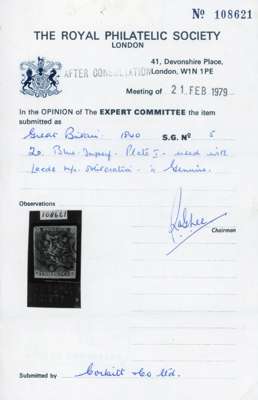 Nº 108621
THE ROYAL PHILATELIC SOCIETY
LONDON
41, Devonshire Place,
AFTER CONSULTATION London, W1N 1PE
Meeting of 21 FEB 1979
In the OPINION of The EXPERT COMMITTEE the item
submitted as
Great Britain 1840 S.G. Nº 5
2d. Blue. Imperf. Plate I. used with
Leeds obliteration - is Genuine.
Observations
108621
Chairman
Submitted by Corbitt & Co Ltd.